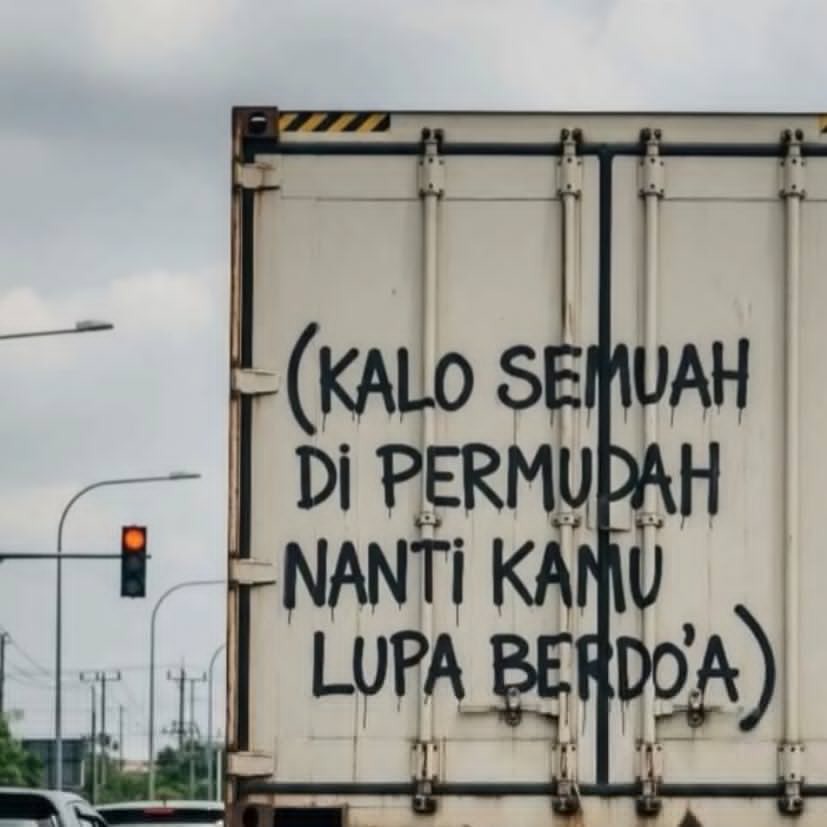 (KALO SEMUAH
Di PERMUDAH
NANTi KAMU
LUPA BERDO'A)